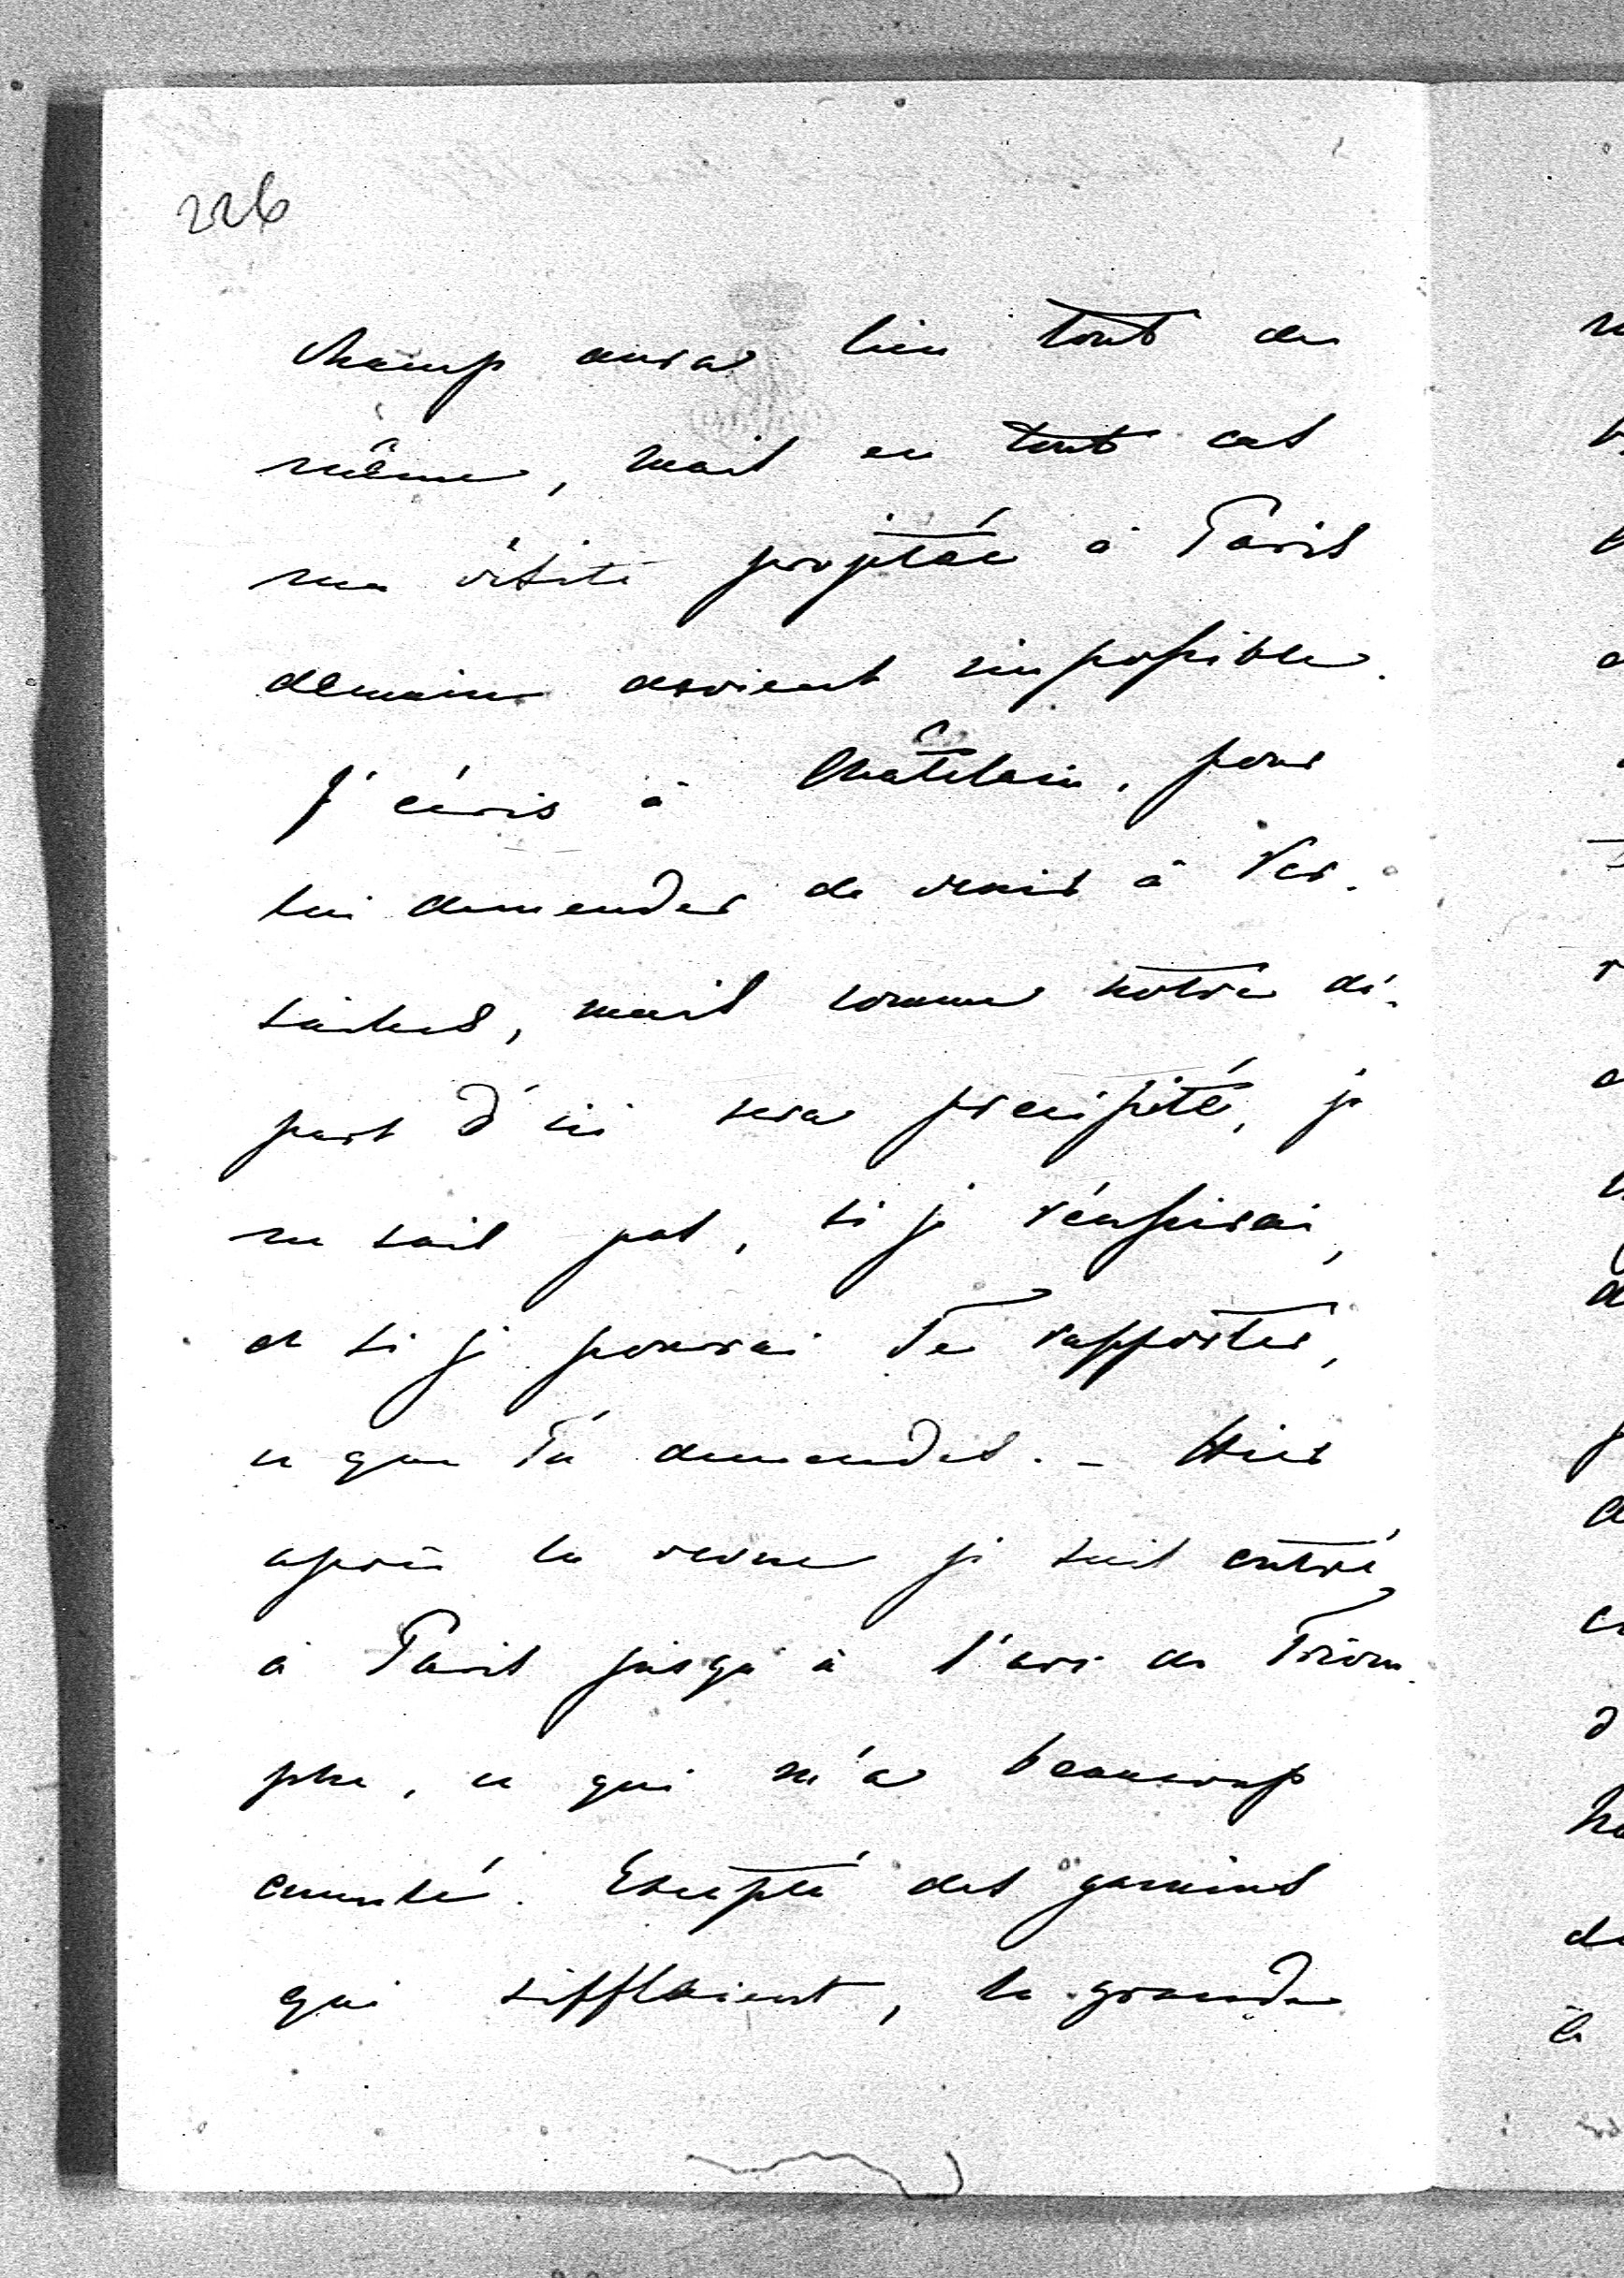 226
champ aura lieu tout de
même, mais en tout cas
ma visite projetée à Paris
demain devient impossible.
J'écris à Châtelain, pour
lui demander de venir à Ver-
sailles, mais comme notre dé-
part d'ici sera precipité, je
ne sais pas, si je réussirai,
et si je pourrai Te rapporter,
ce que Tu demandes. – Hier
après la revue je suis entré
à Paris jusqu'à l'arc de Triom-
phe, ce qui m'a beaucoup
Excepté des gamins
qui sifflaient, la grande